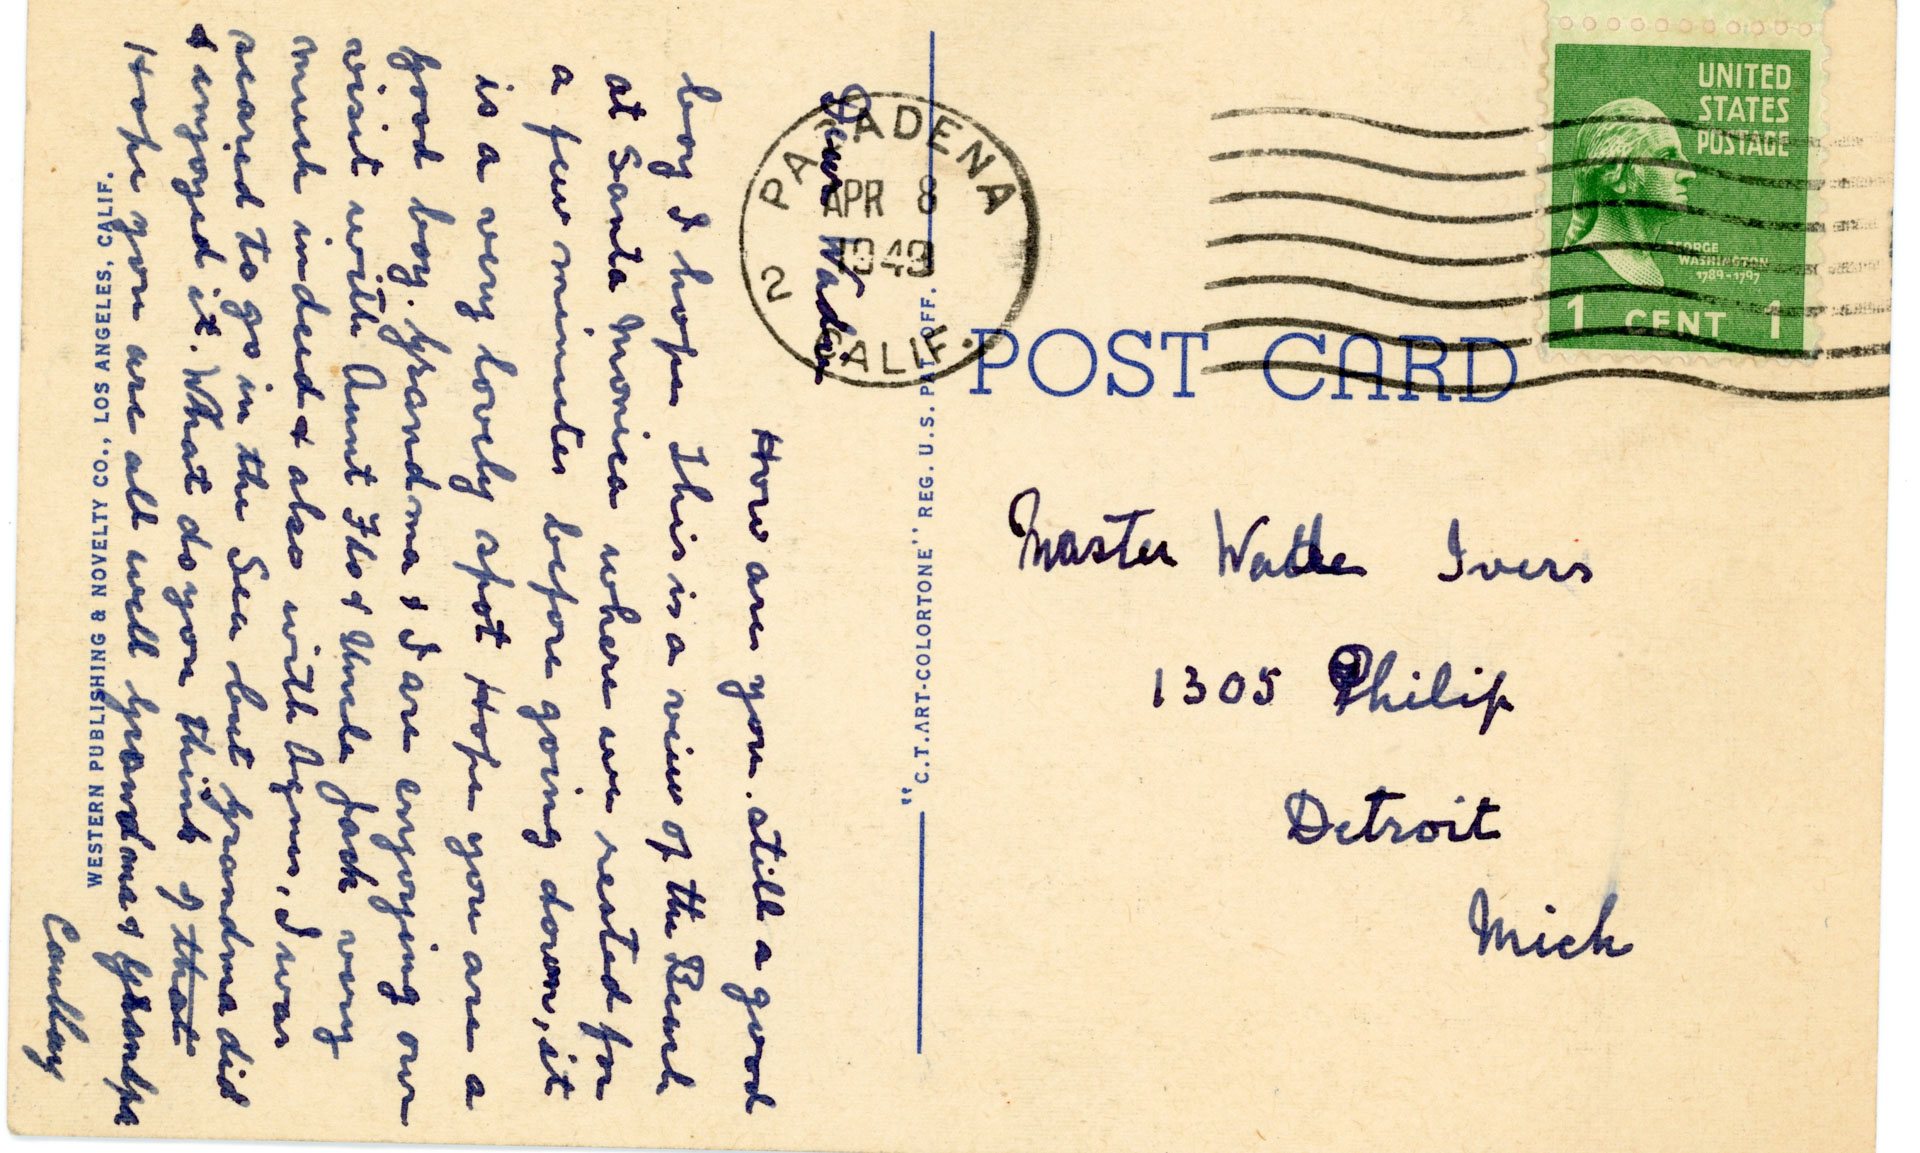 Dear Wade
How are you. still a good
boy I hope This is a view of the Beach
at Santa Monica where we rested for
a few minutes before going down, it
is a very lovely spot Hope you are a
good boy. Grandma & I are enjoying our
visit with Aunt Flo & Uncle Jack very
much indeed & also with Agnes, I was
scared to go in the Sea but Grandma did
& injoyed it. What do you think of that
Hope you are all well Grandma & Grandpa
WESTERN PUBLISHING & NOVELTY CO., LOS ANGELES, CALIF.
"C.T.ART-COLORTONE" REG. U.S. PAT. OFF.
PASADENA
APR 8
1949
2
CALIF.
POST CARD
UNITED
STATES
POSTAGE
GEORGE
WASHINGTON
1789-1797
1 CENT 1
Master Wade Ivers
1305 Philip
Detroit
Mich